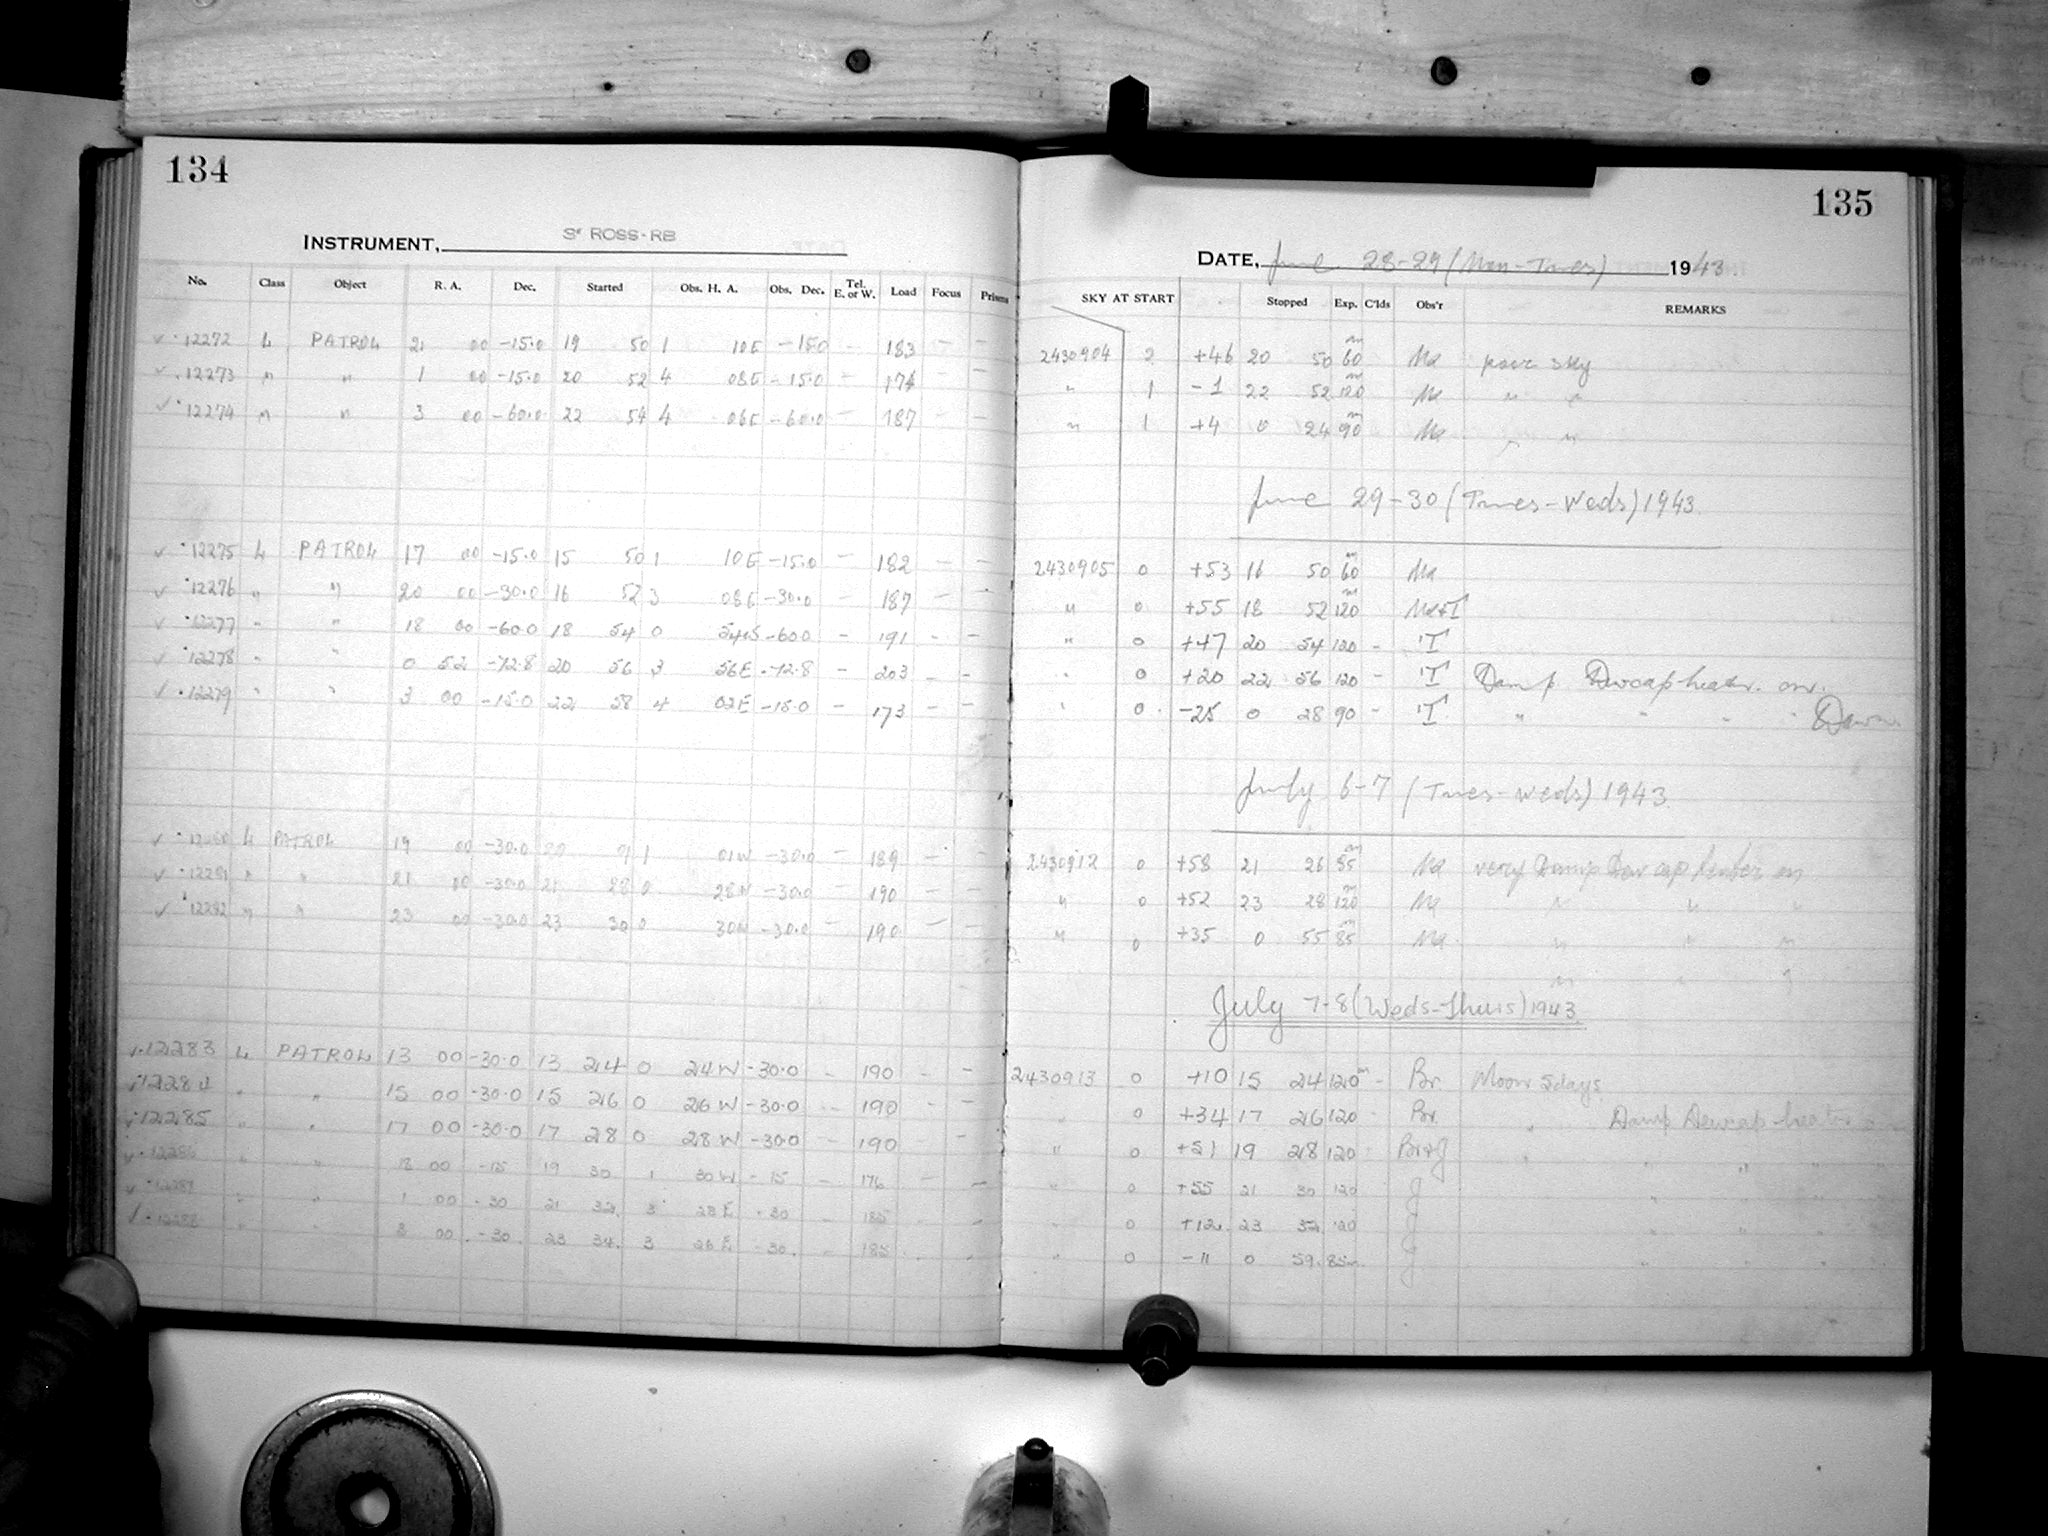 134
INSTRUMENT, Sr ROSS-RB
No. Class Object R. A. Dec. Started Obs. H. A. Obs. Dec. Tel. E. or W. Load Focus Prisms
12272 L PATROL 21 00 -15.0 19 50 1 10E -15.0 - 183 - -
12273 " " 1 00 -15.0 20 52 4 08E -15.0 - 174 - -
12274 " " 3 00 -60.0 22 54 4 06E -60.0 - 187 - -
12275 L PATROL 17 00 -15.0 15 50 1 10E -15.0 - 182 - -
12276 " " 20 00 -30.0 16 52 3 08E -30.0 - 187 - -
12277 " " 18 00 -60.0 18 54 0 -60.0 - 191 - -
12278 " " 0 52 -72.8 20 56 3 56E -72.8 - 203 - -
12279 " " 3 00 -15.0 22 58 4 02E -15.0 - 173 - -
12280 L PATROL 19 00 -30.0 1 01W -30.0 - 189 - -
12281 " " 21 00 -30.0 21 28 0 28W -30.0 - 190 - -
12282 " " 23 00 -30.0 23 30 0 30W -30.0 - 190 - -
12283 L PATROL 13 00 -30.0 13 24 0 24W -30.0 - 190 - -
12284 " " 15 00 -30.0 15 26 0 26W -30.0 - 190 - -
12285 " " 17 00 -30.0 17 28 0 28W -30.0 - 190 -
12286 " " 18 00 -15 19 30 1 30W -15 - 176 - -
12287 " " 1 00 -30 21 32 3 28E -30 - 185 - -
12288 " " 3 00 -30 23 34 3 26E -30 - 185 - -
135
DATE, June 28-29 (Mon-Tues) 1943
SKY AT START Stopped Exp. C'lds Obs'r REMARKS
2430904 2 +46 20 50 60m Ma poor sky
" 1 -1 22 52 120m Ma " "
" 1 +4 0 24 90m Ma " "
June 29-30 (Tues-Weds) 1943
2430905 0 +53 16 50 60m Ma
" 0 +55 18 52 120m Ma+T
" 0 +47 20 54 120 - T
" 0 +20 22 56 120 - T Damp Dewcap heatr. on.
" 0 -25 0 28 90 - T " " " " Dawn
July 6-7 (Tues-Weds) 1943
2430912 0 +58 21 26 85m Ma very Damp Dew cap heater on
" 0 +52 23 28 120m Ma " " "
" 0 +35 0 55 85m Ma " " "
" " "
July 7-8 (Weds-Thurs) 1943
2430913 0 +10 15 24 120m - Br Moon 5days
" 0 +34 17 26 120 - Br " Damp Dewcap heater
" 0 +51 19 28 120 - Br+J " " " "
" 0 +55 21 30 120 J " " "
" 0 +12 23 32 120 J " " "
" 0 -11 0 59 85m J " " "